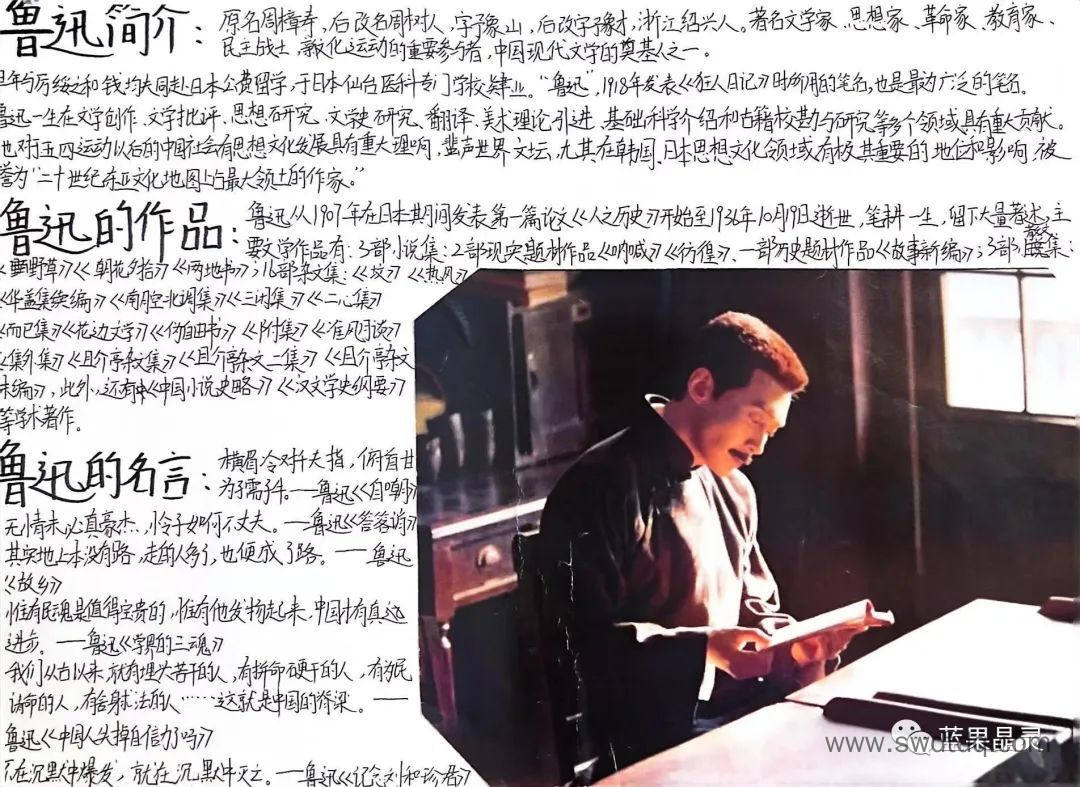 鲁迅简介：原名周樟寿，后改名周树人，字豫山，后改字豫才，浙江绍兴人。著名文学家、思想家、革命家、教育家、
民主战士，新文化运动的重要参与者，中国现代文学的奠基人之一。
年与厉绥之和钱均夫同赴日本公费留学，于日本仙台医科专门学校肄业。“鲁迅”，1918年发表《狂人日记》时所用的笔名，也是最为广泛的笔名。
鲁迅一生在文学创作、文学批评、思想研究、文学史研究、翻译、美术理论引进、基础科学介绍和古籍校勘与研究等多个领域具有重大贡献。
他对五四运动以后的中国社会有思想文化发展具有重大影响，蜚声世界文坛，尤其在韩国、日本思想文化领域有极其重要的地位和影响，被
誉为“二十世纪东亚文化地图上占最大领土的作家。”
鲁迅的作品：鲁迅从1907年在日本期间发表第一篇论文《人之历史》开始至1936年10月19日逝世，笔耕一生，留下大量著述，主
要文学作品有：3部小说集：2部现实题材作品《呐喊》《彷徨》、一部历史题材作品《故事新编》；3部散文集：
《野草》《朝花夕拾》《两地书》；16部杂文集：《坟》《热风》
《华盖集续编》《南腔北调集》《三闲集》《二心集》
《而已集》《花边文学》《伪自由书》《附集》《准风月谈》
《集外集》《且介亭杂文集》《且介亭杂文二集》《且介亭杂文
末编》，此外，还有《中国小说史略》《汉文学史纲要》
等学术著作。
鲁迅的名言：横眉冷对千夫指，俯首甘
为孺子牛。——鲁迅《自嘲》
无情未必真豪杰，怜子如何不丈夫。——鲁迅《答客诮》
其实地上本没有路，走的人多了，也便成了路。——鲁迅
《故乡》
惟有民魂是值得宝贵的，惟有他发扬起来，中国才有真
进步。——鲁迅《学界的三魂》
我们从古以来，就有埋头苦干的人，有拼命硬干的人，有为民
请命的人，有舍身求法的人……这就是中国的脊梁。——
鲁迅《中国人失掉自信力了吗》
在沉默中爆发，就在沉默中灭亡。——鲁迅《记念刘和珍君》
蓝果晶灵